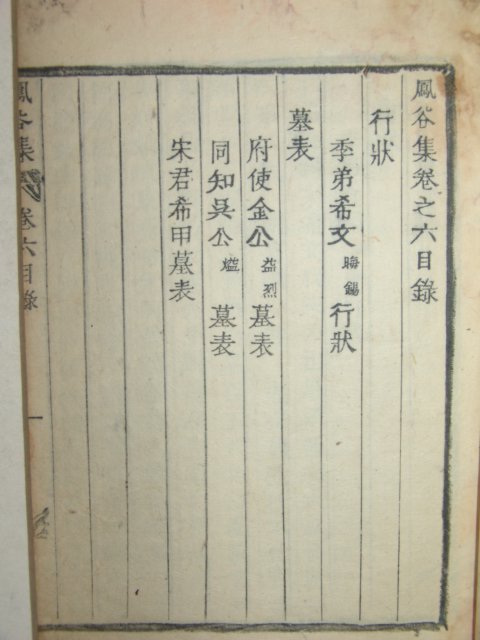 鳳谷集卷之六目錄
行狀
季弟希文 晦錫 行狀
墓表
府使金公 益烈 墓表
同知吳公 墓表
宋君希甲墓表
鳳谷集 卷六目錄 一